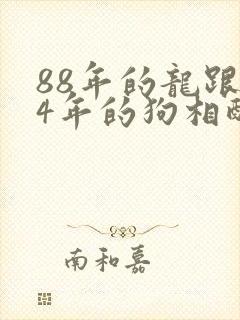 88年的龍跟
4年的狗相
南和嘉